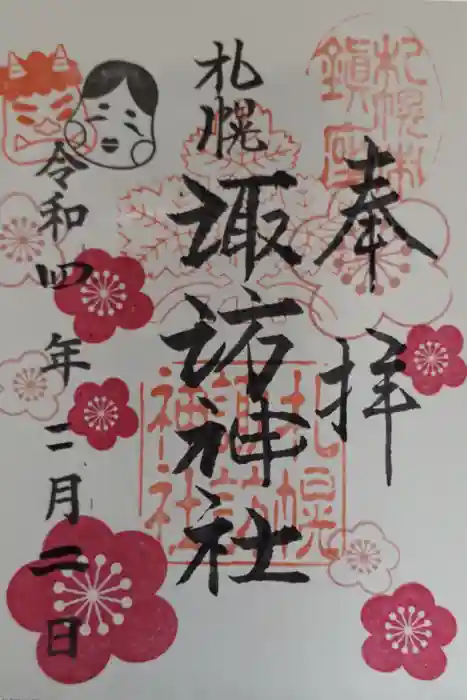 奉拝
札幌
諏訪神社
令和四年二月二日
札幌市
鎮座
札幌
諏訪
神社